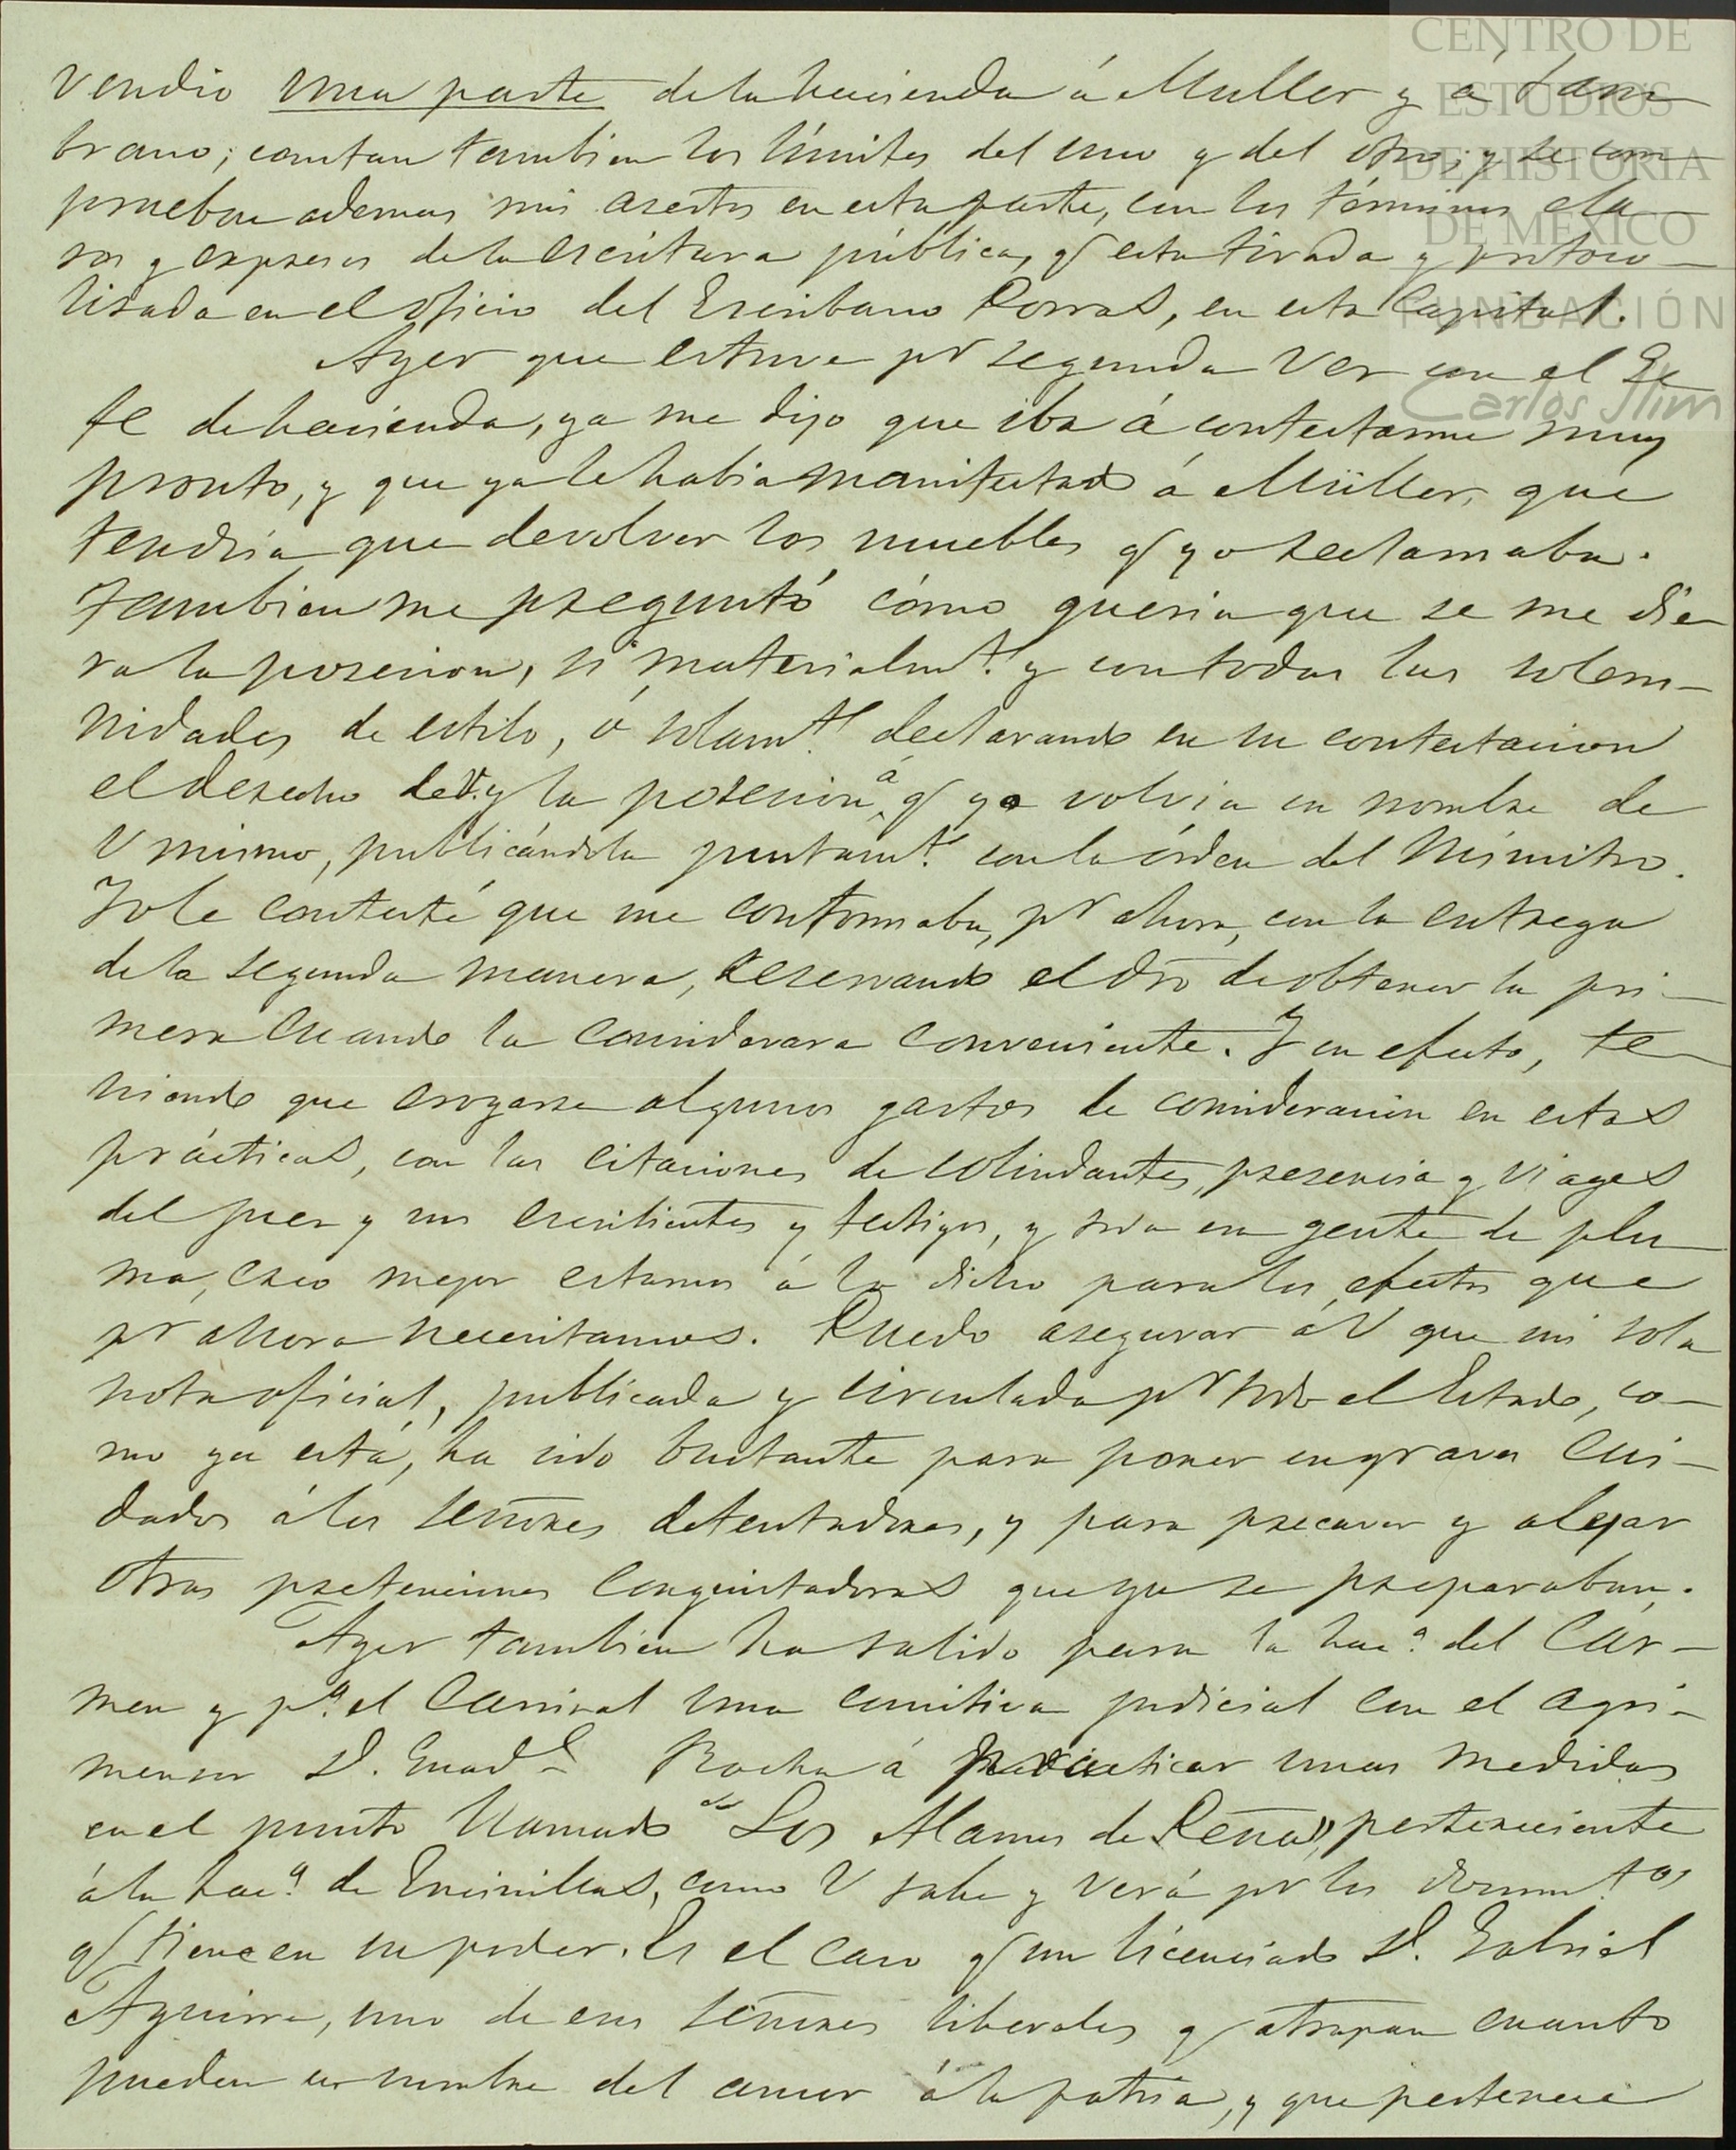 CENTRO DE
ESTUDIOS
DE HISTORIA
DE MEXICO
FUNDACIÓN
Carlos Slim
vendio una parte de la hacienda á Muller y á Zam
brano; constan tambien los límites del uno y del otro; y se com
prueban ademas mis asertos en esta parte, con los términos cla
ros y expresos de la escritura pública, q/ esta tirada y protoco-
lisada en el oficio del Escribano Porras, en esta Capital.
Ayer que estuve pr segunda vez con el Ge
fe de hacienda, ya me dijo que iba á contestarme muy
pronto, y que ya le habia manifestado á Müller, que
tendria que devolver los muebles q/ yo reclamaba.
Tambien me preguntó cómo queria que se me die
ra la posesion, si materialmte. y con todas las solem-
nidades de estilo, ó solamte. declarando en su contestacion
el derecho de V. y la posesion á q/ yo volvia en nombre de
V mismo, publicándola juntamte. con la órden del Ministro.
Yo le contesté que me conformaba, pr ahora, con la entrega
de la segunda manera, reservando el dro de obtener la pri-
mera cuando la considerara conveniente. Y en efecto, te
niendo que erogarse algunos gastos de consideracion en estas
prácticas, con las citaciones de colindantes, presencia y viages
del juez y sus escribientes y testigos, y toda esa gente de plu
ma, creo mejor estarnos á lo dicho para los efectos que
pr ahora necesitamos. Puedo asegurar á V que mi sola
nota oficial, publicada y circulada pr todo el Estado, co-
mo ya está, ha sido bastante para poner en graves cui-
dados á los señores detentadores, y para precaver y alejar
otras pretensiones conquistadoras que ya se preparaban.
Ayer tambien ha salido para la haca. del Cár-
men y pa. el Carrizal una comitiva judicial con el agri-
mensor D. Guade Rocha á practicar unas medidas
en el punto llamado de "Los Alamos de Peña", perteneciente
á la haca. de Encinillas, como V sabe y verá pr los documtos.
q/ tiene en su poder. Es el caso q/ un licenciado D. Gabriel
Aguirre, uno de esos señores liberales q/ atrapan cuanto
pueden en nombre del amor á la patria, y que pertenece